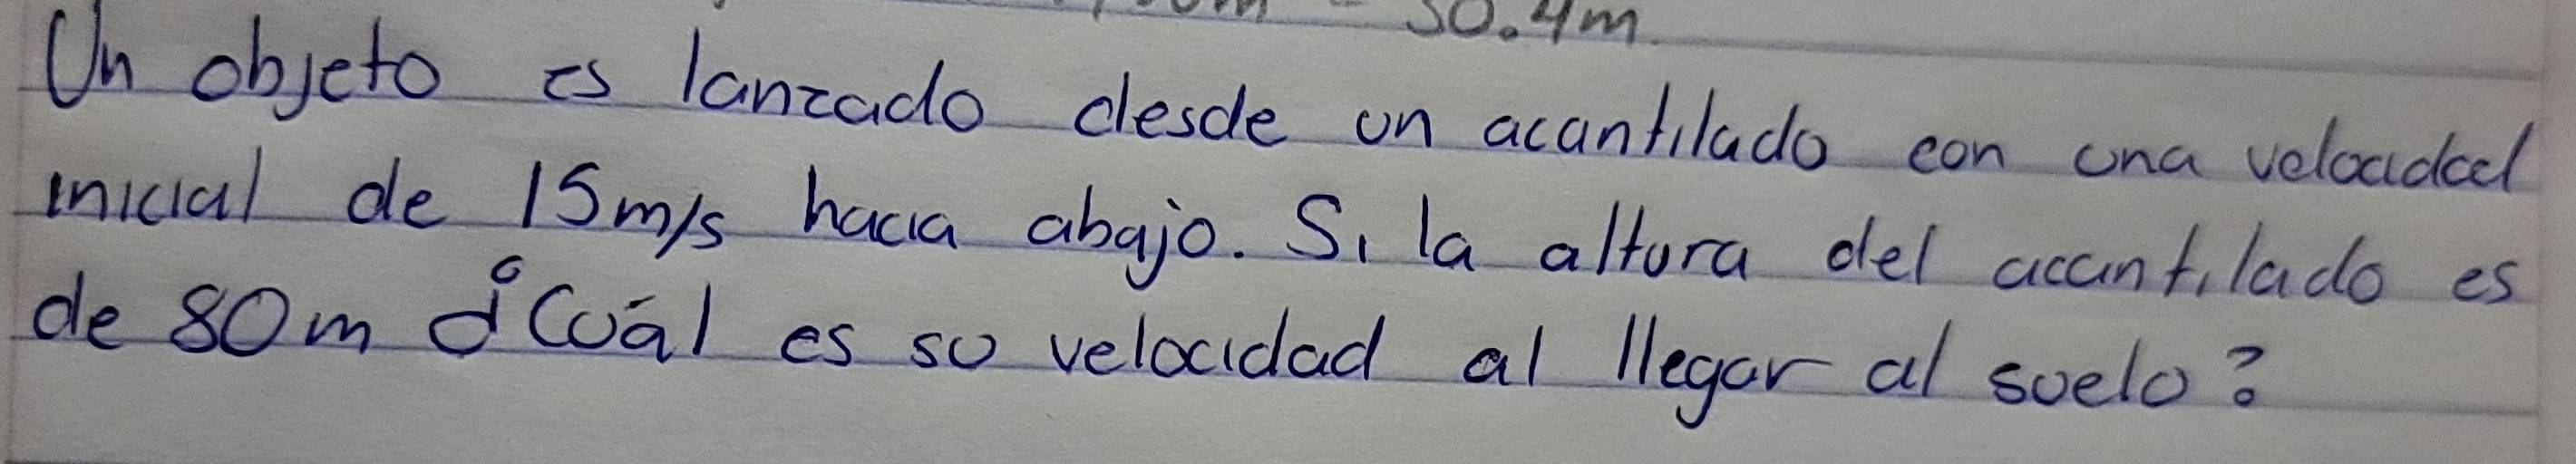 30.4m.
Un objeto es lanzado desde un acantilado con una velocidad
inicial de 15m/s hacia abajo. Si la altura del acantilado es
de 80m ¿Cuál es su velocidad al llegar al suelo?